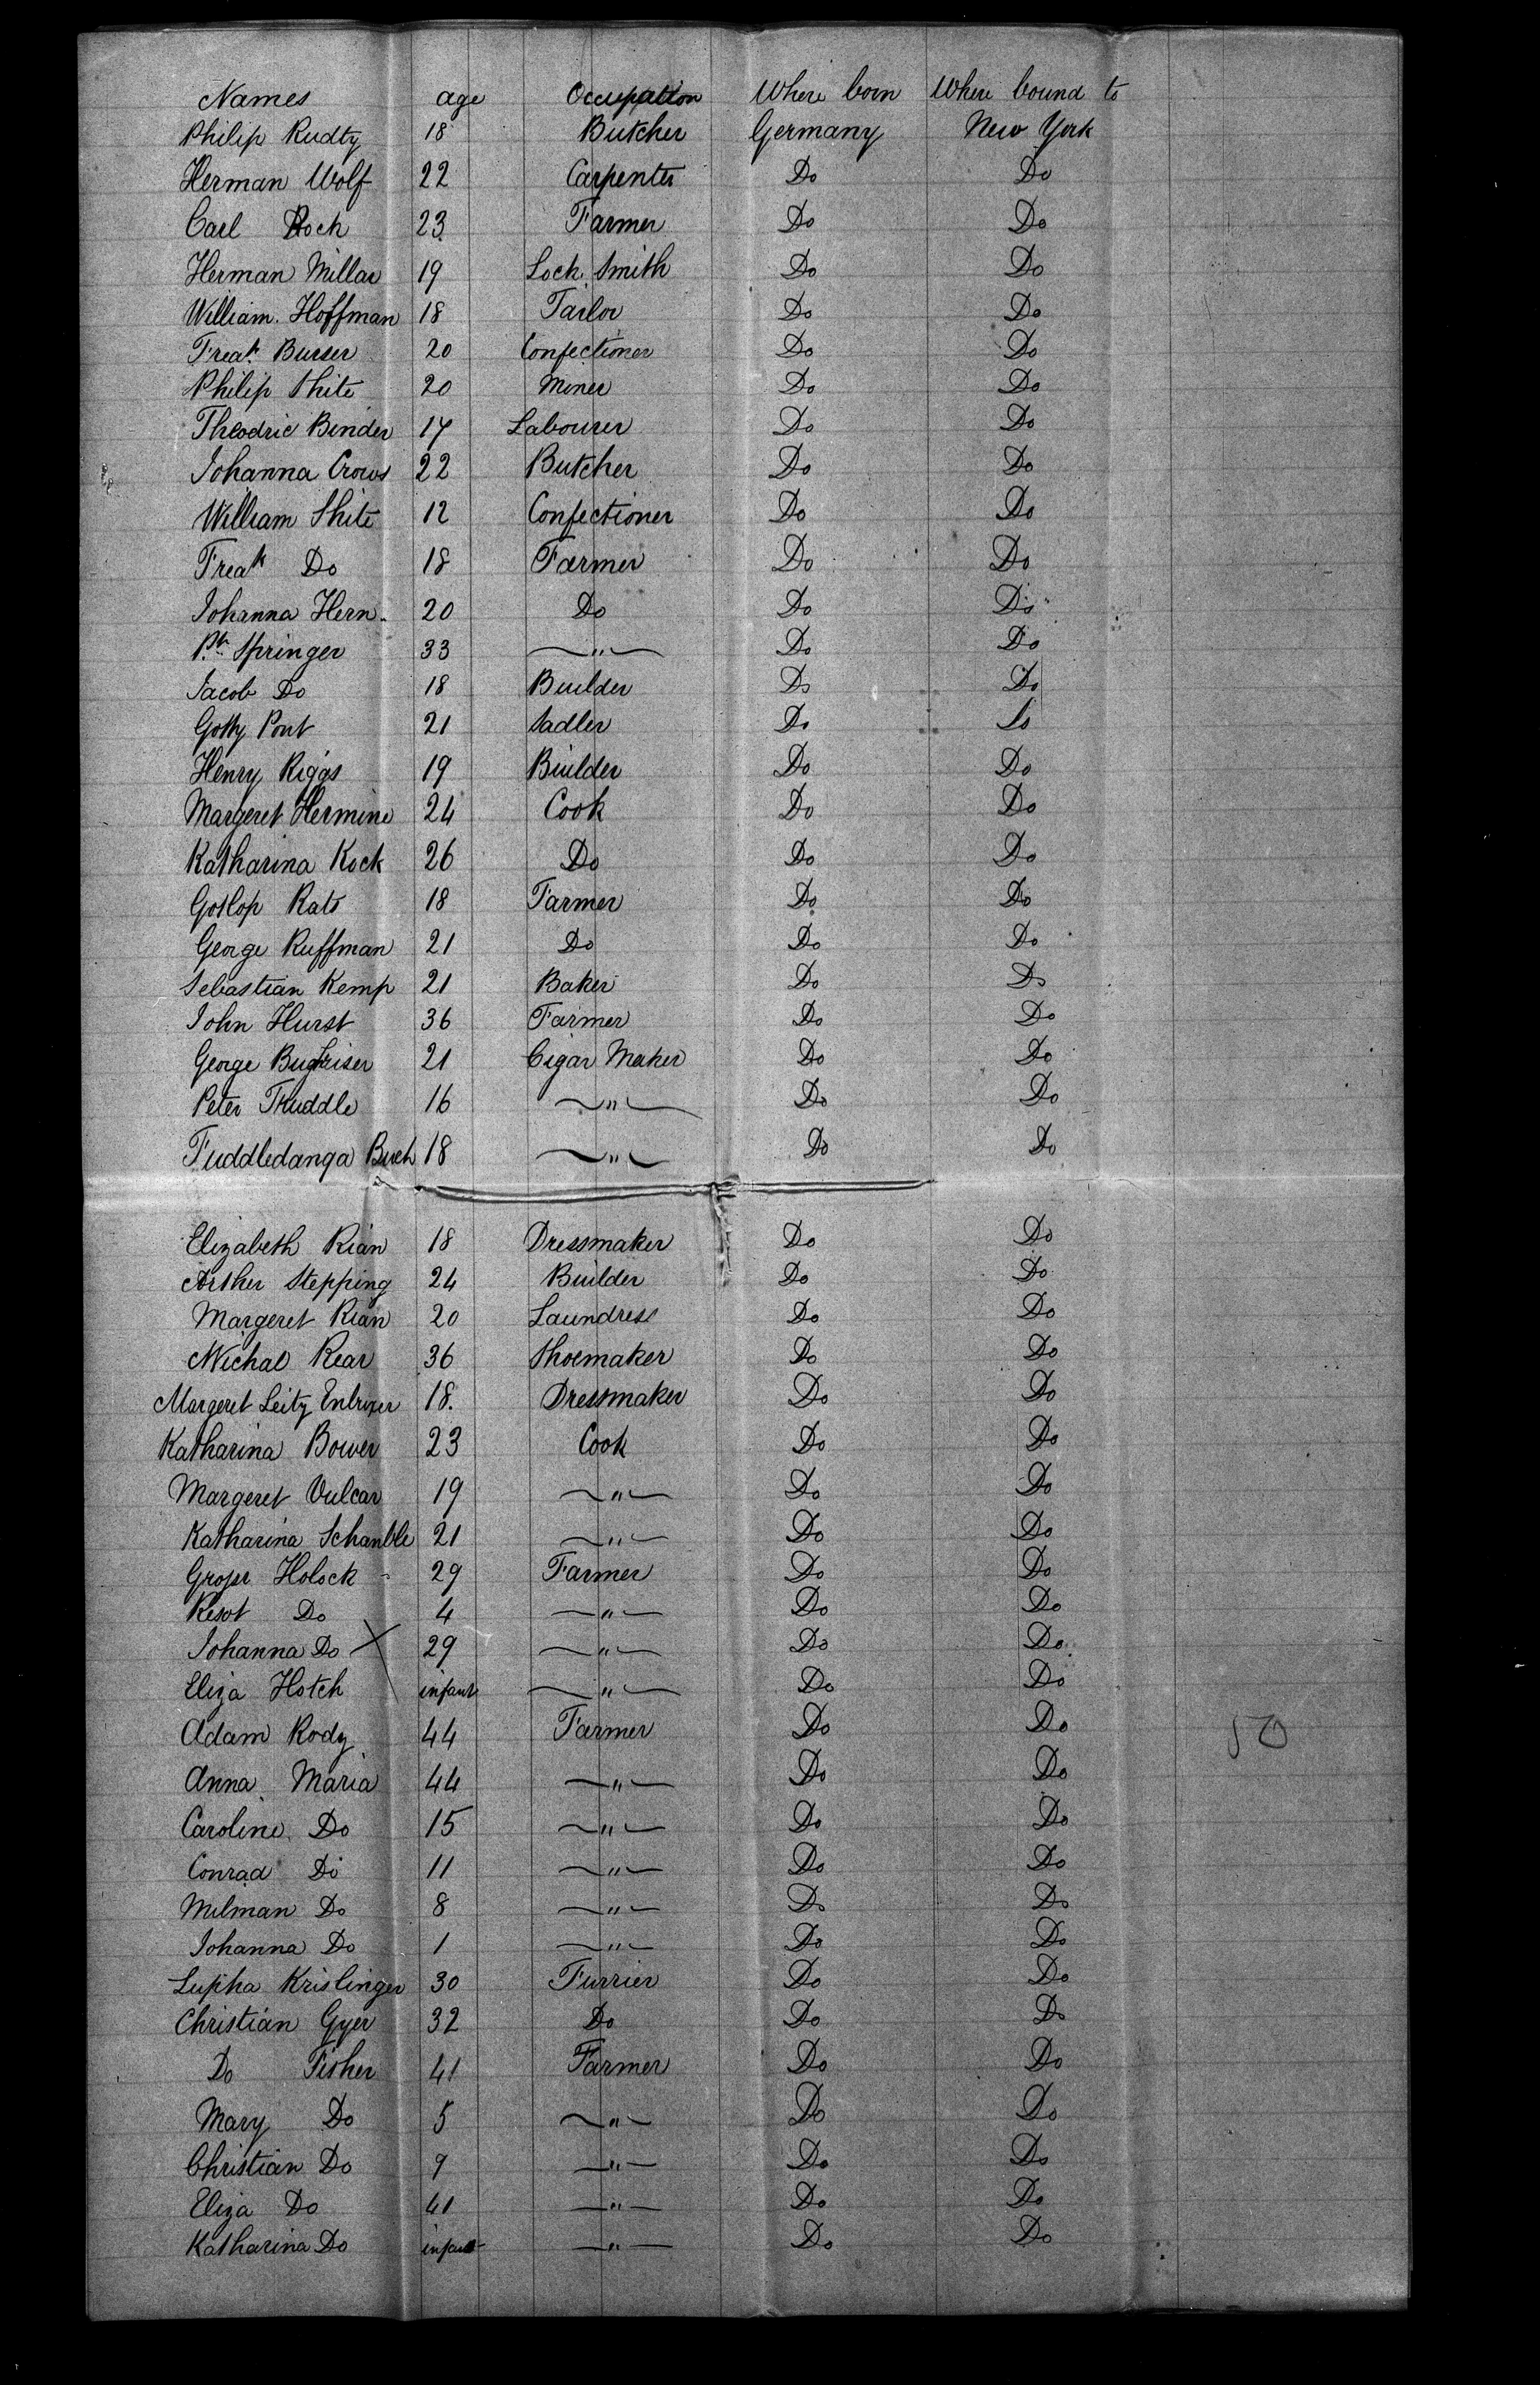 Names age Occupation Where born Where bound to
Philip Rudty 18 Butcher Germany New York
Herman Wolf 22 Carpenter Do Do
Carl Rock 23 Farmer Do Do
Herman Millar 19 Lock Smith Do Do
William Hoffman 18 Tailor Do Do
Freak Burser 20 Confectioner Do Do
Philip Shite 20 Miner Do Do
Theodric Binder 17 Labourer Do Do
Johanna Crows 22 Butcher Do Do
William Shite 12 Confectioner Do Do
Freak Do 18 Farmer Do Do
Johanna Hern 20 Do Do Do
Springer 33 —"— Do Do
Jacob Do 18 Builder Do Do
Gotty Pont 21 Sadler Do Do
Henry Riggs 19 Builder Do Do
Margeret Hermine 24 Cook Do Do
Katharina Kock 26 Do Do Do
Gotlop Rats 18 Farmer Do Do
George Ruffman 21 Do Do Do
Sebastian Kemp 21 Baker Do Do
John Hurst 36 Farmer Do Do
George 21 Cigar Maker Do Do
Peter Truddle 16 —"— Do Do
Fuddledanga Buch 18 —"— Do Do
Elizabeth Rian 18 Dressmaker Do Do
Arther Stepping 24 Builder Do Do
Margeret Rian 20 Laundress Do Do
Michal Rear 36 Shoemaker Do Do
Margeret Leitz 18. Dressmaker Do Do
Katharina Bower 23 Cook Do Do
Margeret Vulcar 19 —"— Do Do
Katharina Schanble 21 —"— Do Do
Holock 29 Farmer Do Do
Resot Do 4 —"— Do Do
Johanna Do 29 —"— Do Do
Eliza Hotch infant —"— Do Do
Adam Rody 44 Farmer Do Do 50
Anna Maria 44 —"— Do Do
Caroline Do 15 —"— Do Do
Conrad Do 11 —"— Do Do
Milman Do 8 —"— Do Do
Johanna Do 1 —"— Do Do
Lupha Krislinger 30 Furrier Do Do
Christian Gyer 32 Do Do Do
Do Fisher 41 Farmer Do Do
Mary Do 5 —"— Do Do
Christian Do 9 —"— Do Do
Eliza Do 41 —"— Do Do
Katharina Do infant —"— Do Do